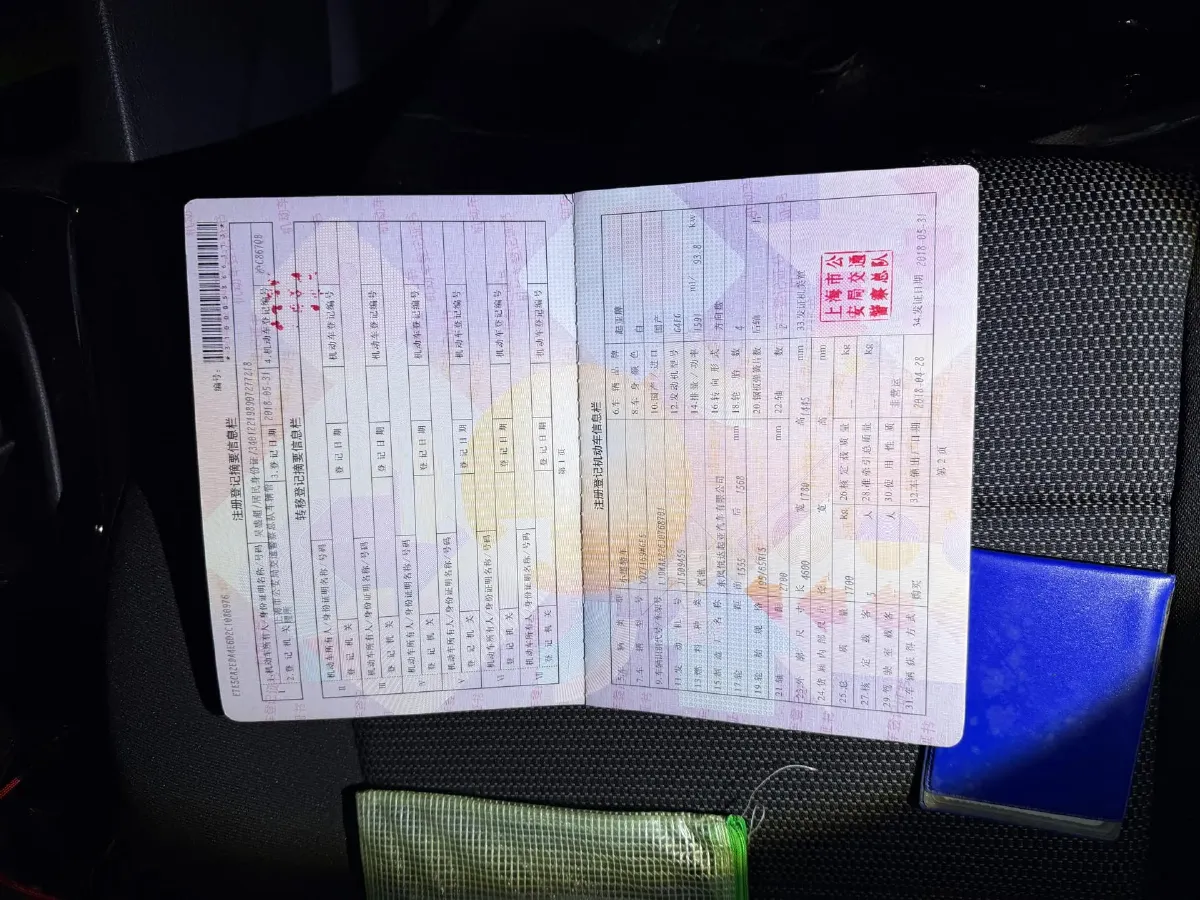 编号:
注册登记摘要信息栏
Ⅰ 1.机动车所有人/身份证明名称/号码
2.登记机关 上海市公安局交通警察总队车辆管理所 3.登记日期 2018-05-31 4.机动车登记编号
转移登记摘要信息栏
Ⅱ 机动车所有人/身份证明名称/号码
登记机关 登记日期 机动车登记编号
Ⅲ 机动车所有人/身份证明名称/号码
登记机关 登记日期 机动车登记编号
Ⅳ 机动车所有人/身份证明名称/号码
登记机关 登记日期 机动车登记编号
Ⅴ 机动车所有人/身份证明名称/号码
登记机关 登记日期 机动车登记编号
Ⅵ 机动车所有人/身份证明名称/号码
登记机关 登记日期 机动车登记编号
Ⅶ 机动车所有人/身份证明名称/号码
登记机关 登记日期 机动车登记编号
第1页
注册登记机动车信息栏
5.车辆类型 小型轿车 6.车辆品牌 起亚牌
7.车辆型号 8.车身颜色 白
9.车辆识别代号/车架号 10.国产/进口 国产
11.发动机号 12.发动机型号 G4FG
13.燃料种类 汽油 14.排量/功率 1591 ml/ 93.8 kw
15.制造厂名称 东风悦达起亚汽车有限公司 16.转向形式 方向盘
17.轮距 前 1555 后 1568 mm 18.轮胎数 4
19.轮胎规格 195/65R15 20.钢板弹簧片数 后轴 片
21.轴距 2700 mm 22.轴数 2
23.外廓尺寸 长 4600 宽 1780 高 1445 mm 33.发证机关章
24.货厢内部尺寸 长 宽 高 mm
25.总质量 1700 kg 26.核定载质量 kg
27.核定载客 5 人 28.准牵引总质量 kg
29.驾驶室载客 人 30.使用性质 非营运
31.车辆获得方式 购买 32.车辆出厂日期 2018-04-28 34.发证日期 2018-05-31
上海市公
安局交通
警察总队
第2页